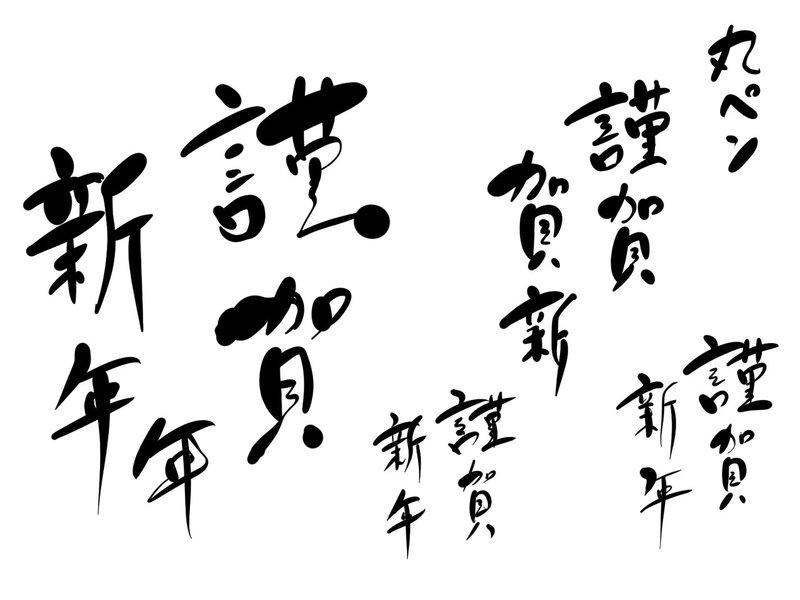 丸ペン
謹賀
賀新
謹賀
新年年
謹賀
新年
謹賀
新年